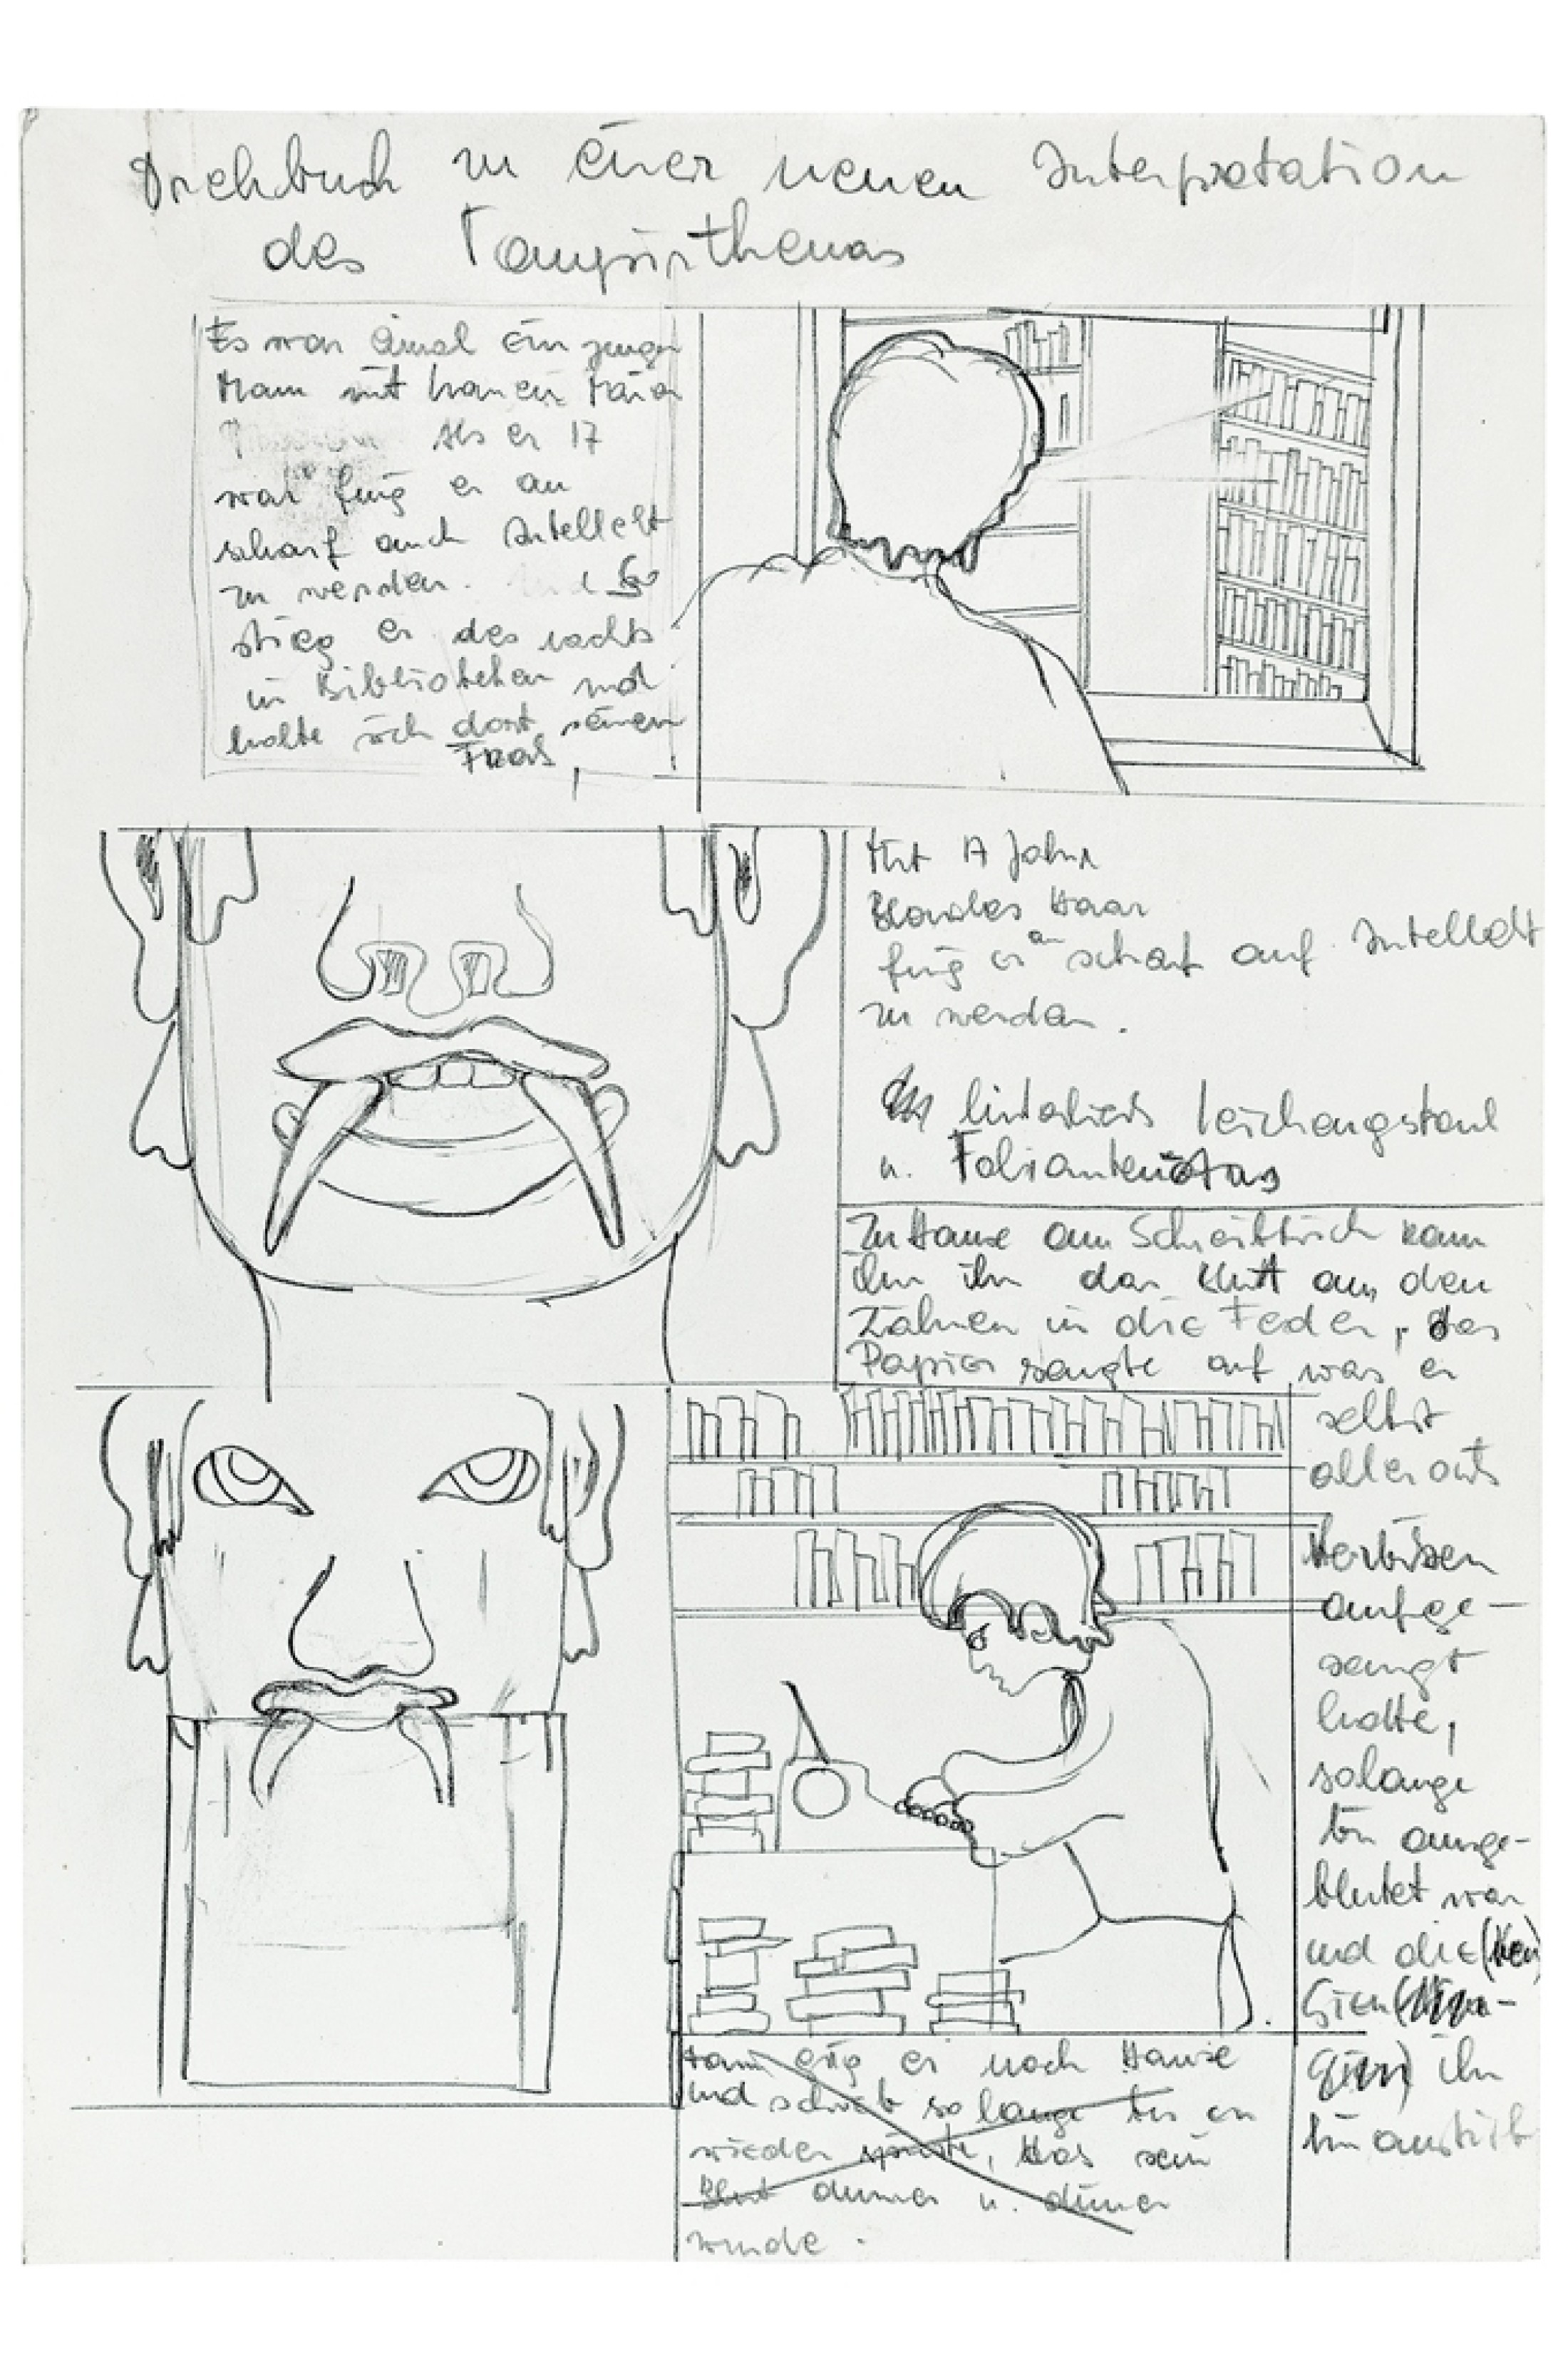 Drehbuch zu einer neuen Interpretation
des Vampirthemas
Es war einmal ein junger
Mann mit
Als er 17
war fing er an
scharf auch Intellekt
zu werden. So
stieg er des nachts
in Bibliotheken und
holte sich dort seinen
Fras
Mit 17 Jahr
Blondes Haar
fing er an scharf auf Intellekt
zu werden.
hinterlies Leichengstank
u. Folianten
Zu Hause am Schreibtisch kam
ihm ihn das Blut aus den
Zähnen in die Feder, das
Papier saugte auf was er
selbst
allerorts
Verbissen
aufge-
saugt
hatte,
solange
bis ausge-
blutet war
und die
Gier
ihn
hinaustrieb
dann ging er nach Hause
und schrieb so lange bis er
wieder spürte, das sein
Blut dünner u. dünner
wurde.